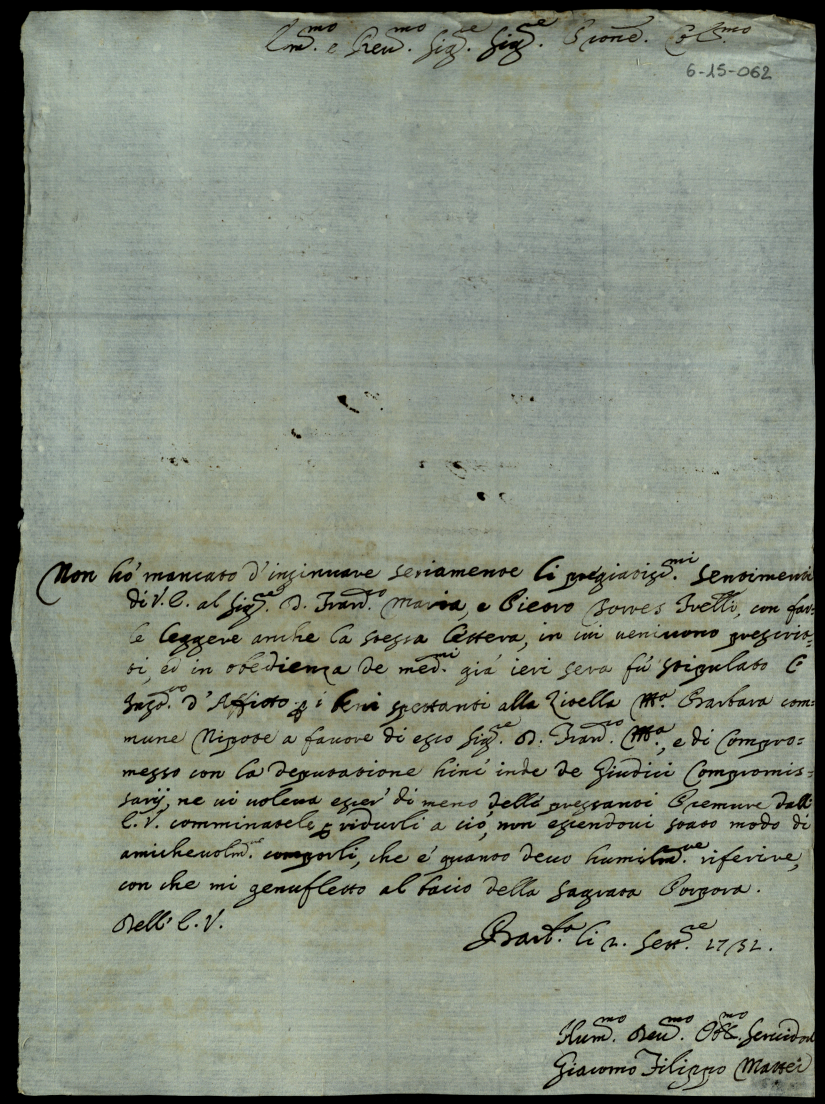 Em.mo e Reu.mo Sig.re Sig.re Prone. Col.mo
6-15-062
Non hó mancato d'insinuare seriamente li pregiatiss.mi sentimenti
di V. E. al Sig.re D. Fran.co Maria, e Pietro Torres Frelli, con far-
le leggere anche la stessa lettera, in cui veniuono prescrit-
ti, ed in obedienza de med.mi giá ieri sera fú stipulato l'
d'Affitto p i beni spettanti alla Zitella M.a Barbara com-
mune Nipote a fauore di esso Sig.re D. Fran.co M.a, e di Compro-
messo con la deputatione hinc inde de Giudici Compromis-
sarij, ne ui voleua esser di meno delle pressanti Premure dall'
E. V. comminatele p ridurli a ció, non essendoui stato modo di
amicheuolm.te comporli, che é quanto deuo humilm.te riferire,
con che mi genufletto al bacio della Sagrata Porpora.
Dell' E. V.
Barb.a li 2. Sett.re 1732.
Hum.mo Deu.mo Obb.mo Seruidore
Giacomo Filippo Mattei